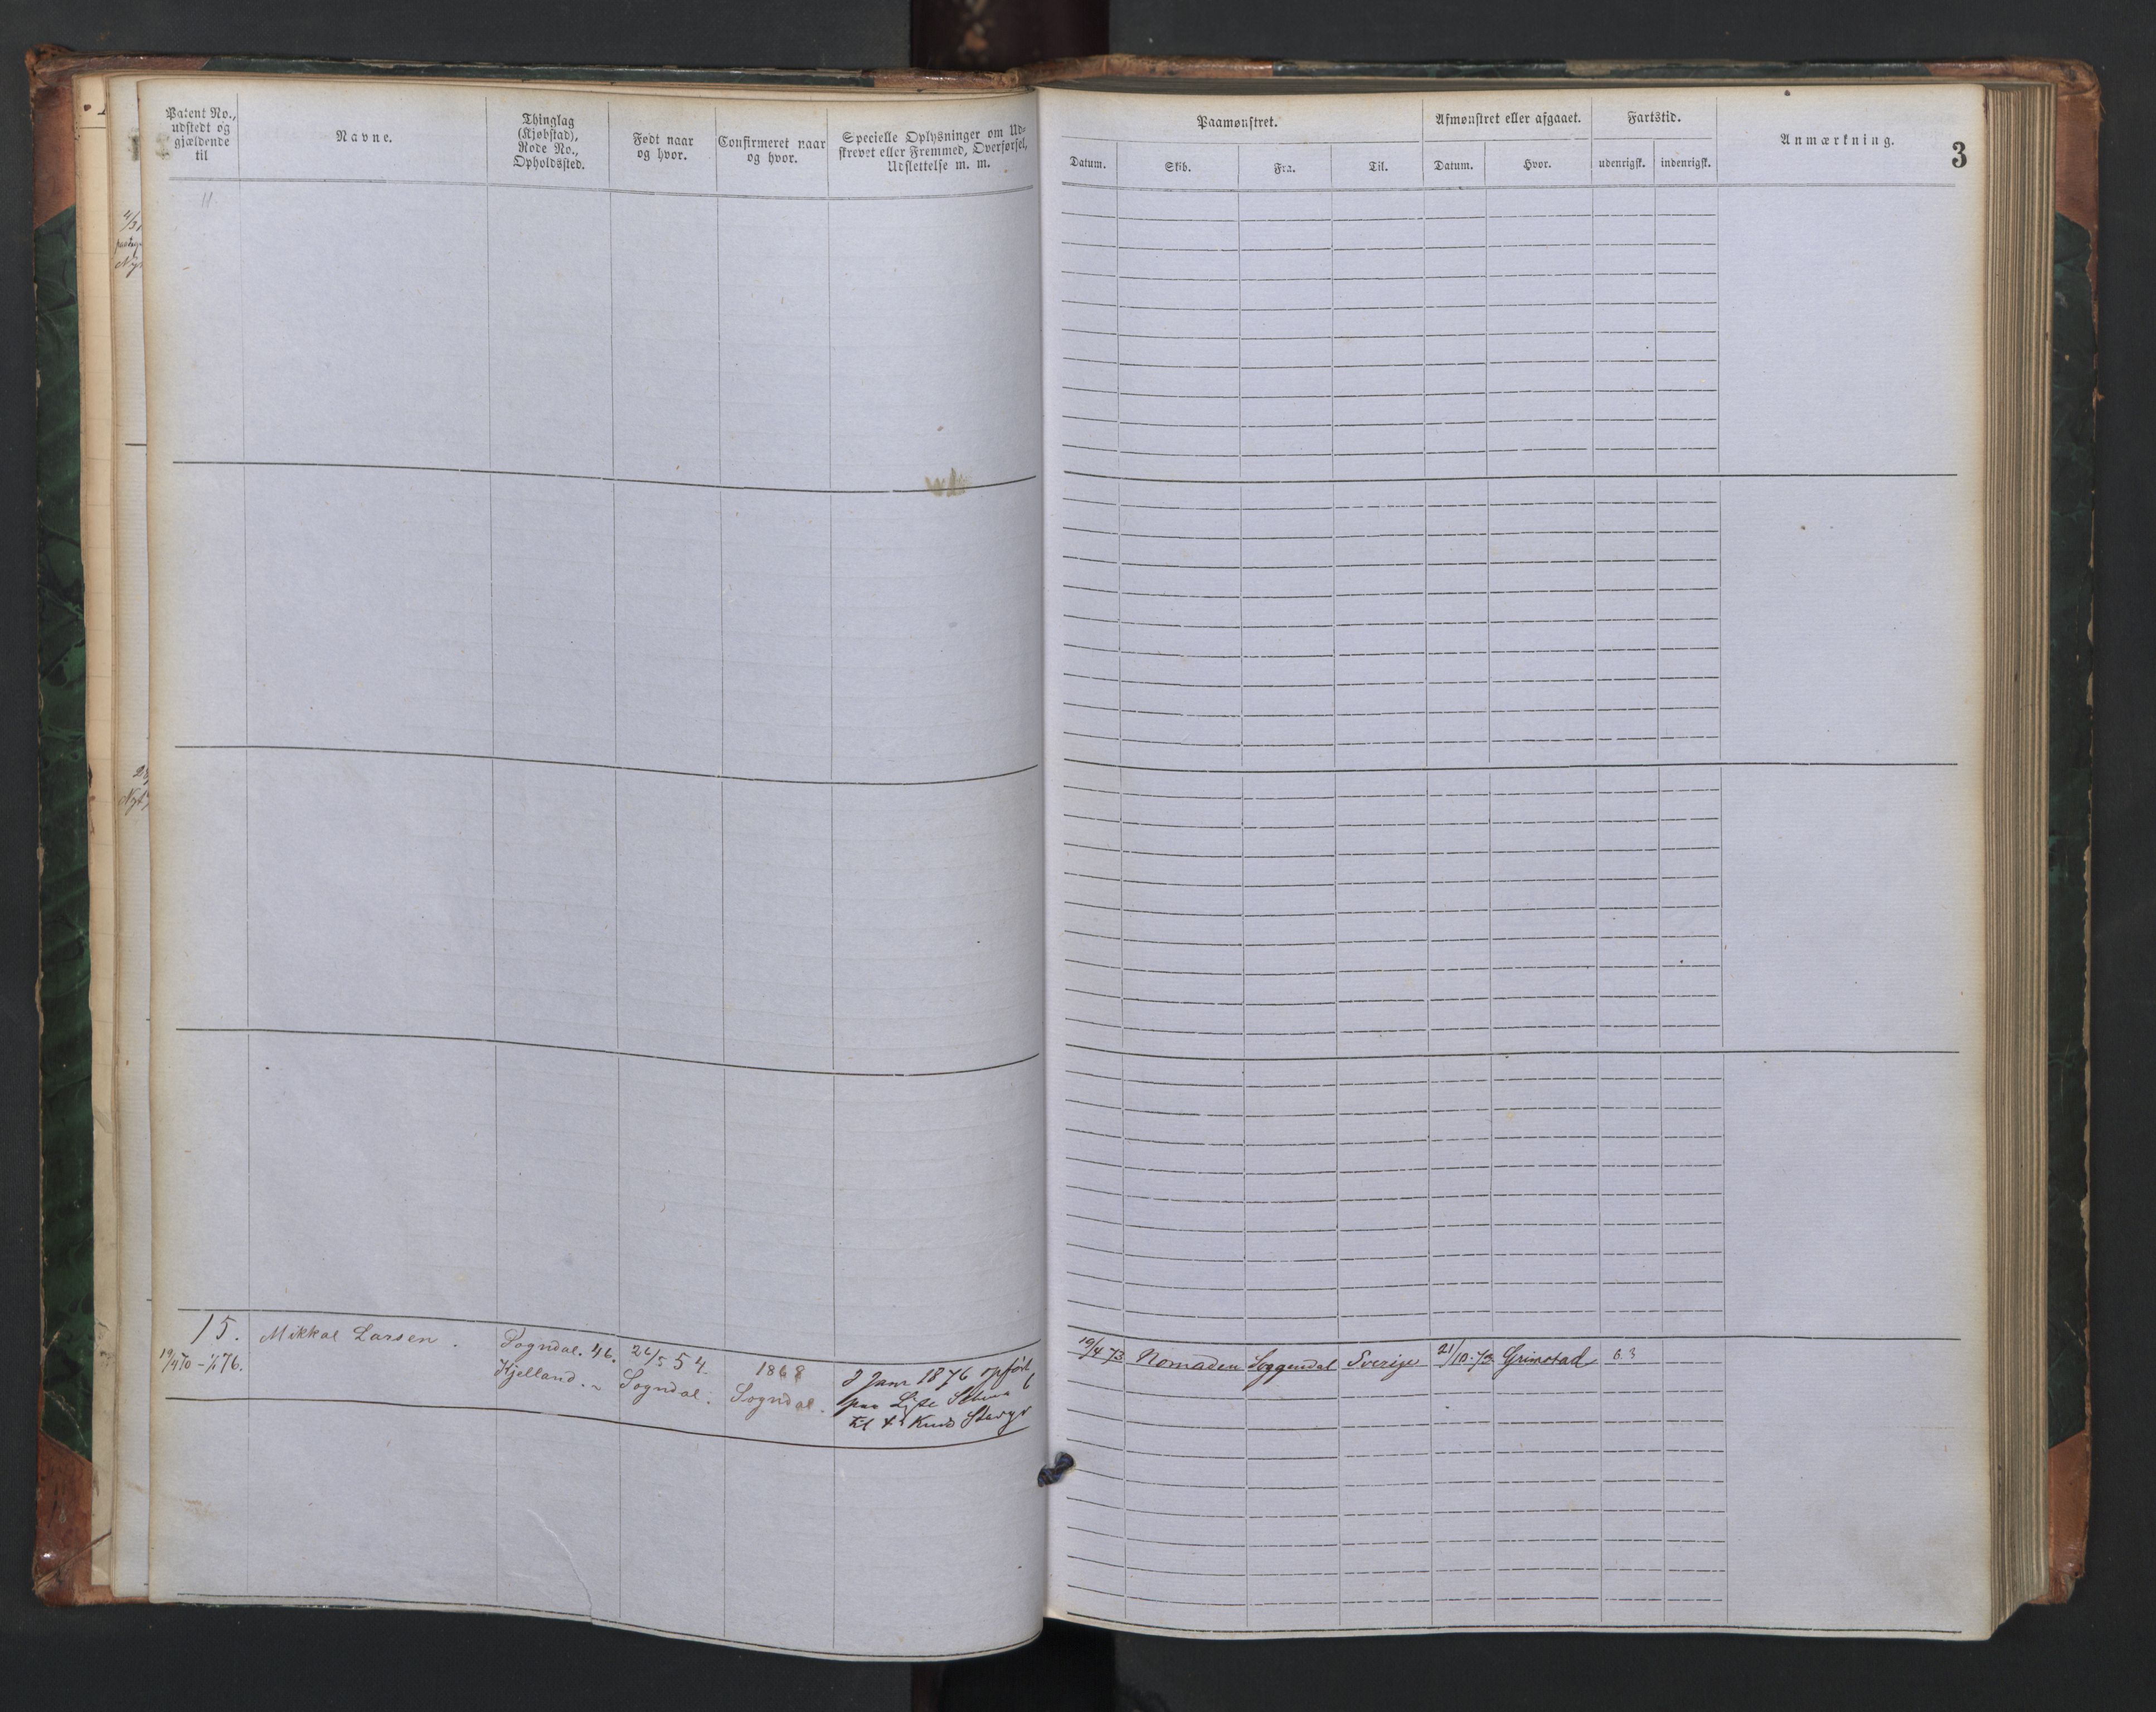 Patent No.,
udstedt og
gjældende
til
Navne.
Thinglag
(Kjøbstad),
Rode No.,
Opholdssted.
Født naar
og hvor.
Confirmeret naar
og hvor.
Specielle Oplysninger om Ud-
skrevet eller Fremmed, Overførsel,
Udslettelse m. m.
11.
15.
19/4 70 - 1/1 76.
Mikkal Larsen.
Sogndal. 46.
Kjelland.
26/5 54
Sogndal.
1868
Sogndal.
2 Janr 1876 opført
paa Liste
Paamønstret.
Afmønstret eller afgaaet.
Fartstid.
Anmærkning.
3
Datum.
Skib.
Fra.
Til.
Datum.
Hvor.
udenrigsk.
indenrigsk.
19/4 73 Nomaden Soggendal Sverige 21/10.73 Grimstad 6.3